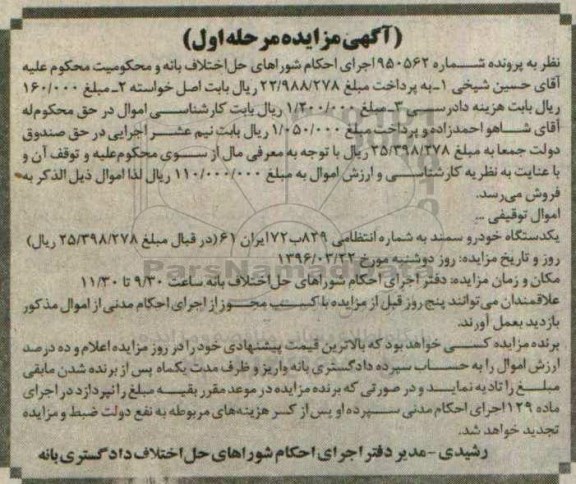 (آگهی مزایده مرحله اول)
نظر به پرونده شماره ۹۵۰۵۶۲ اجرای احکام شوراهای حل اختلاف بانه و محکومیت محکوم علیه
آقای حسین شیخی ۱ـ به پرداخت مبلغ ۲۲/۹۸۸/۲۷۸ ریال بابت اصل خواسته ۲ـ مبلغ ۱۶۰/۰۰۰
ریال بابت هزینه دادرسی ۳ـ مبلغ ۱/۲۰۰/۰۰۰ ریال بابت کارشناسی اموال در حق محکوم له
آقای شاهو احمدزاده و پرداخت مبلغ ۱/۰۵۰/۰۰۰ ریال بابت نیم عشر اجرایی در حق صندوق
دولت جمعا به مبلغ ۲۵/۳۹۸/۲۷۸ ریال با توجه به معرفی مال از سوی محکوم علیه و توقف آن و
با عنایت به نظریه کارشناسی و ارزش اموال به مبلغ ۱۱۰/۰۰۰/۰۰۰ ریال لذا اموال ذیل الذکر به
فروش می رسد.
اموال توقیفی ـ
یکدستگاه خودرو سمند به شماره انتظامی ۸۲۹ب۷۲ ایران ۶۱ (در قبال مبلغ ۲۵/۳۹۸/۲۷۸ ریال)
روز و تاریخ مزایده: روز دوشنبه مورخ ۱۳۹۶/۰۳/۲۲
مکان و زمان مزایده: دفتر اجرای احکام شوراهای حل اختلاف بانه ساعت ۹/۳۰ تا ۱۱/۳۰
علاقمندان می توانند پنج روز قبل از مزایده با کسب مجوز از اجرای احکام مدنی از اموال مذکور
بازدید بعمل آورند.
برنده مزایده کسی خواهد بود که بالاترین قیمت پیشنهادی خود را در روز مزایده اعلام و ده درصد
ارزش اموال را به حساب سپرده دادگستری بانه واریز و ظرف مدت یکماه پس از برنده شدن مابقی
مبلغ را تادیه نمایند و در صورتی که برنده مزایده در موعد مقرر بقیه مبلغ را نپردازد در اجرای
ماده ۱۲۹ اجرای احکام مدنی سپرده او پس از کسر هزینه های مربوطه به نفع دولت ضبط و مزایده
تجدید خواهد شد.
رشیدی - مدیر دفتر اجرای احکام شوراهای حل اختلاف دادگستری بانه
ParsNamadData